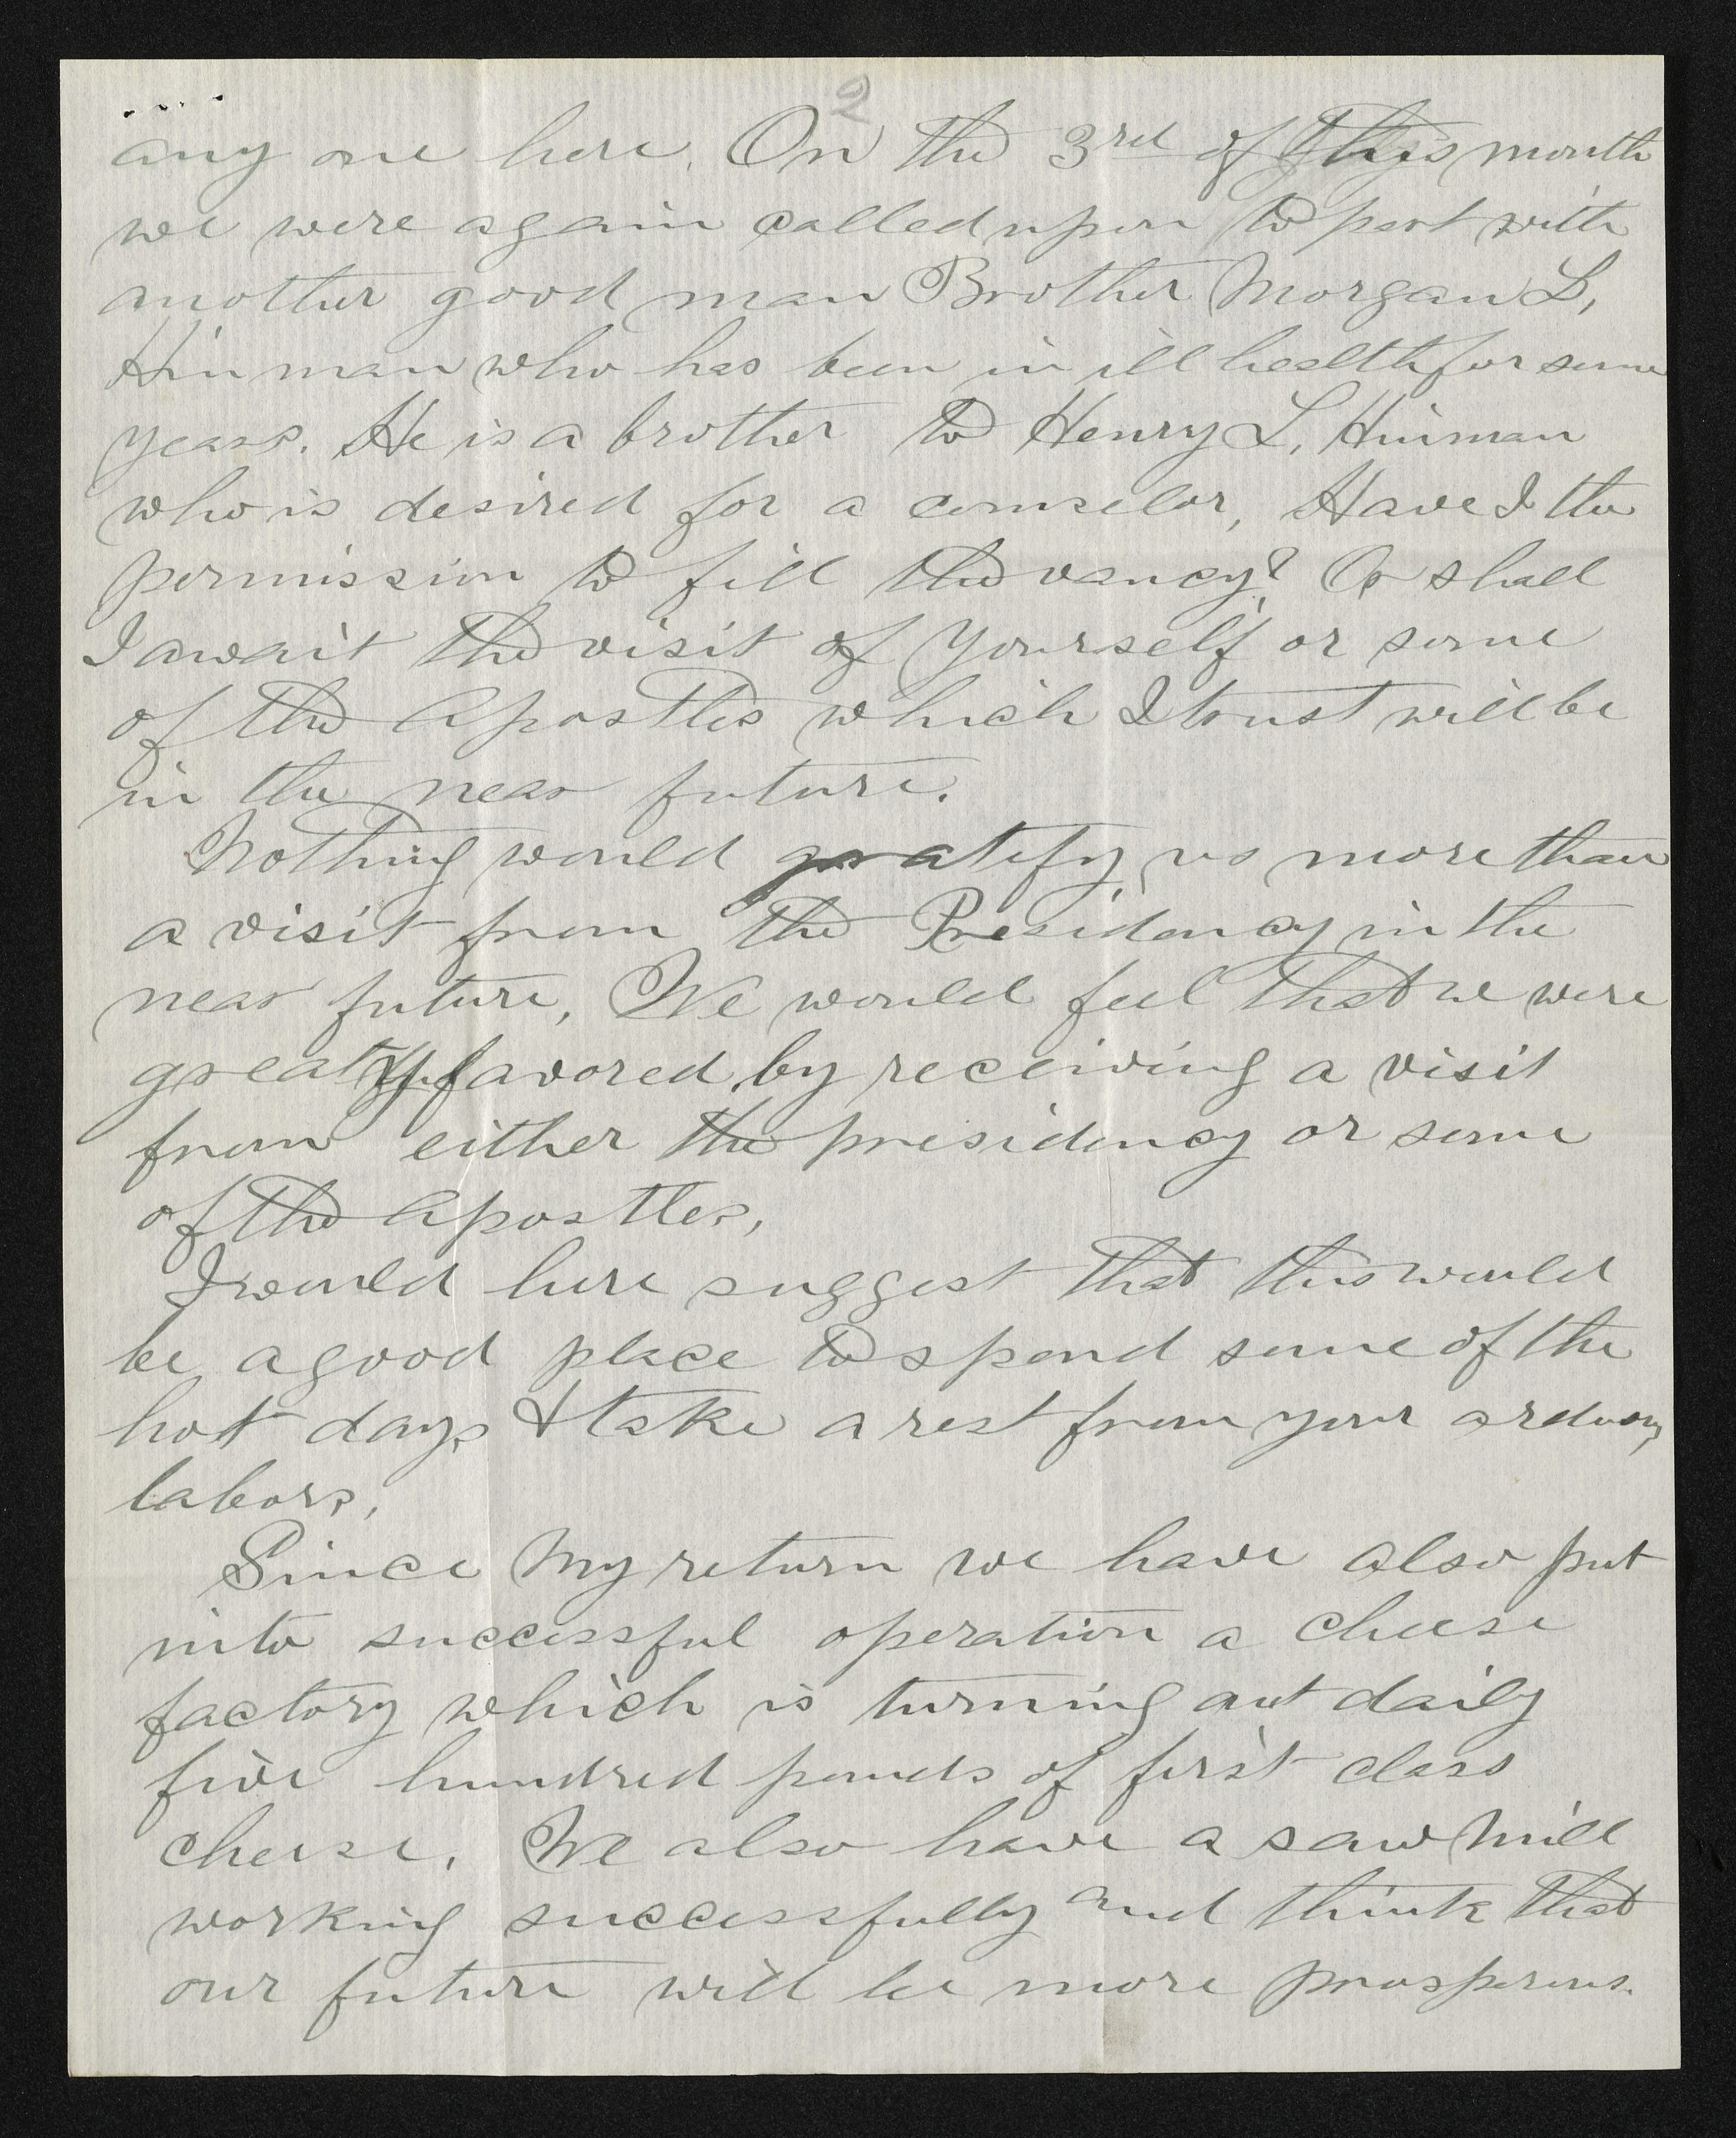 2
any one here. On the 3rd of this month
we were again called upon to part with
another good man Brother Morgan L,
Hinman who has been in ill health for some
years. He is a brother to Henry L, Hinman
who is desired for a counselor, Have I the
permission to fill the vancy? Or shall
I await the visit of yourself or some
of the Apostles which I trust will be
in the near future.
Nothing would gratify us more than
a visit from the Presidency in the
near future, We would feel that we were
greatly favored by receiving a visit
from either the presidency or some
of the Apostles,
I would here suggest that this would
be a good place to spend some of the
hot days & take a rest from your arduous
labors,
Since My return we have also put
into successful operation a cheese
factory which is turning out daily
five hundred pounds of first class
cheese. We also have a saw Mill
working successfully and think that
our future will be more prosperous.